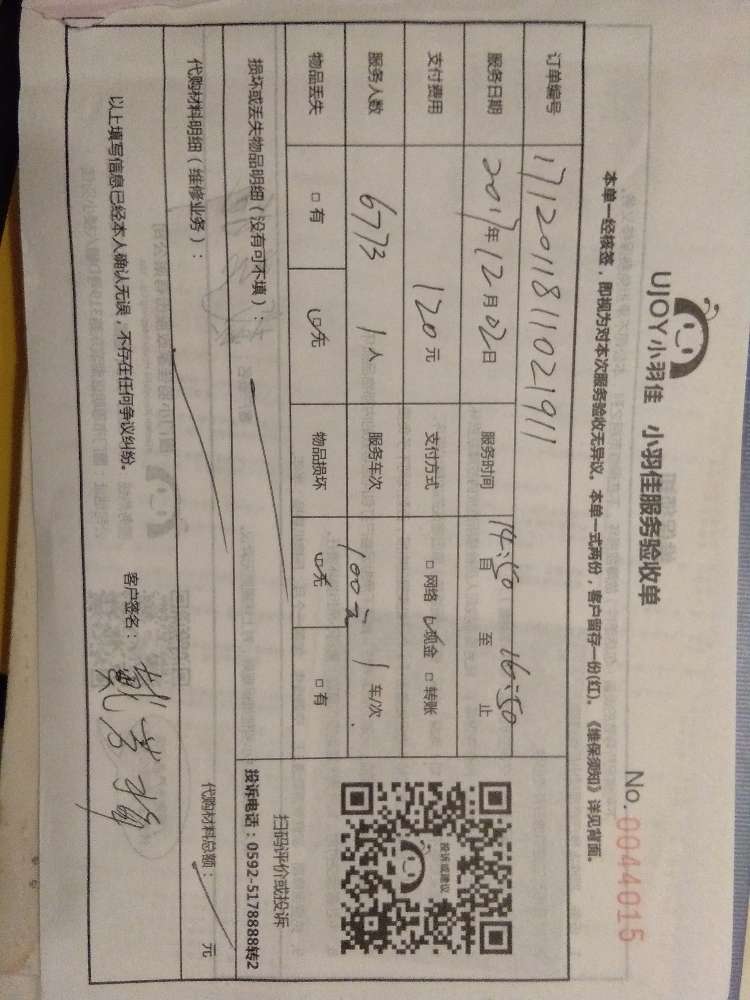 UJOY小羽佳 小羽佳服务验收单 No. 0044015
本单一经核签，即视为对本次服务验收无异议。本单一式两份，客户留存一份(红)。《维保须知》详见背面。
订单编号 1712011811021911
服务日期 2017年12月02日 服务时间 14:50 自 至 16:50 止
支付费用 120元 支付方式 □网络 ☑现金 □转账
100元
服务人数 6773 1人 服务车次 1车/次
物品丢失 □有 ☑无 物品损坏 ☑无 □有
投诉或建议
扫码评价或投诉
投诉电话：0592-5178888转2
损坏或丢失物品明细（没有可不填）：
代购材料明细（维修业务）： 代购材料总额： 元
以上填写信息已经本人确认无误，不存在任何争议纠纷。 客户签名：